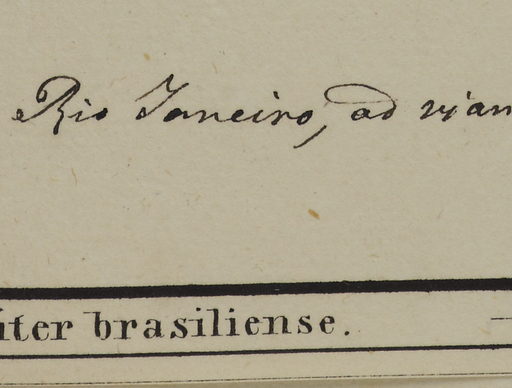 Rio Janeiro, ad viam
iter brasiliense.